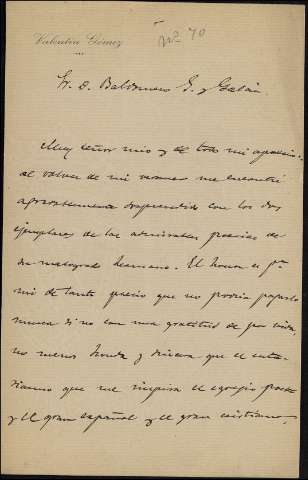 Valentín Gómez
nº 70
Sr. D. Baldomero G. y Galán.
Muy señor mío y de todo mi aprecio:
al volver de mi veraneo me encontré
agradablemente sorprendido con los dos
ejemplares de las admirables poesías de
su malogrado hermano. El honor es pª
mí de tanto precio que no podría pagarlo
nunca si no con una gratitud de por vida,
no menos honda y sincera que el entu-
siasmo que me inspira el egregio poeta
y el gran español y el gran cristiano,